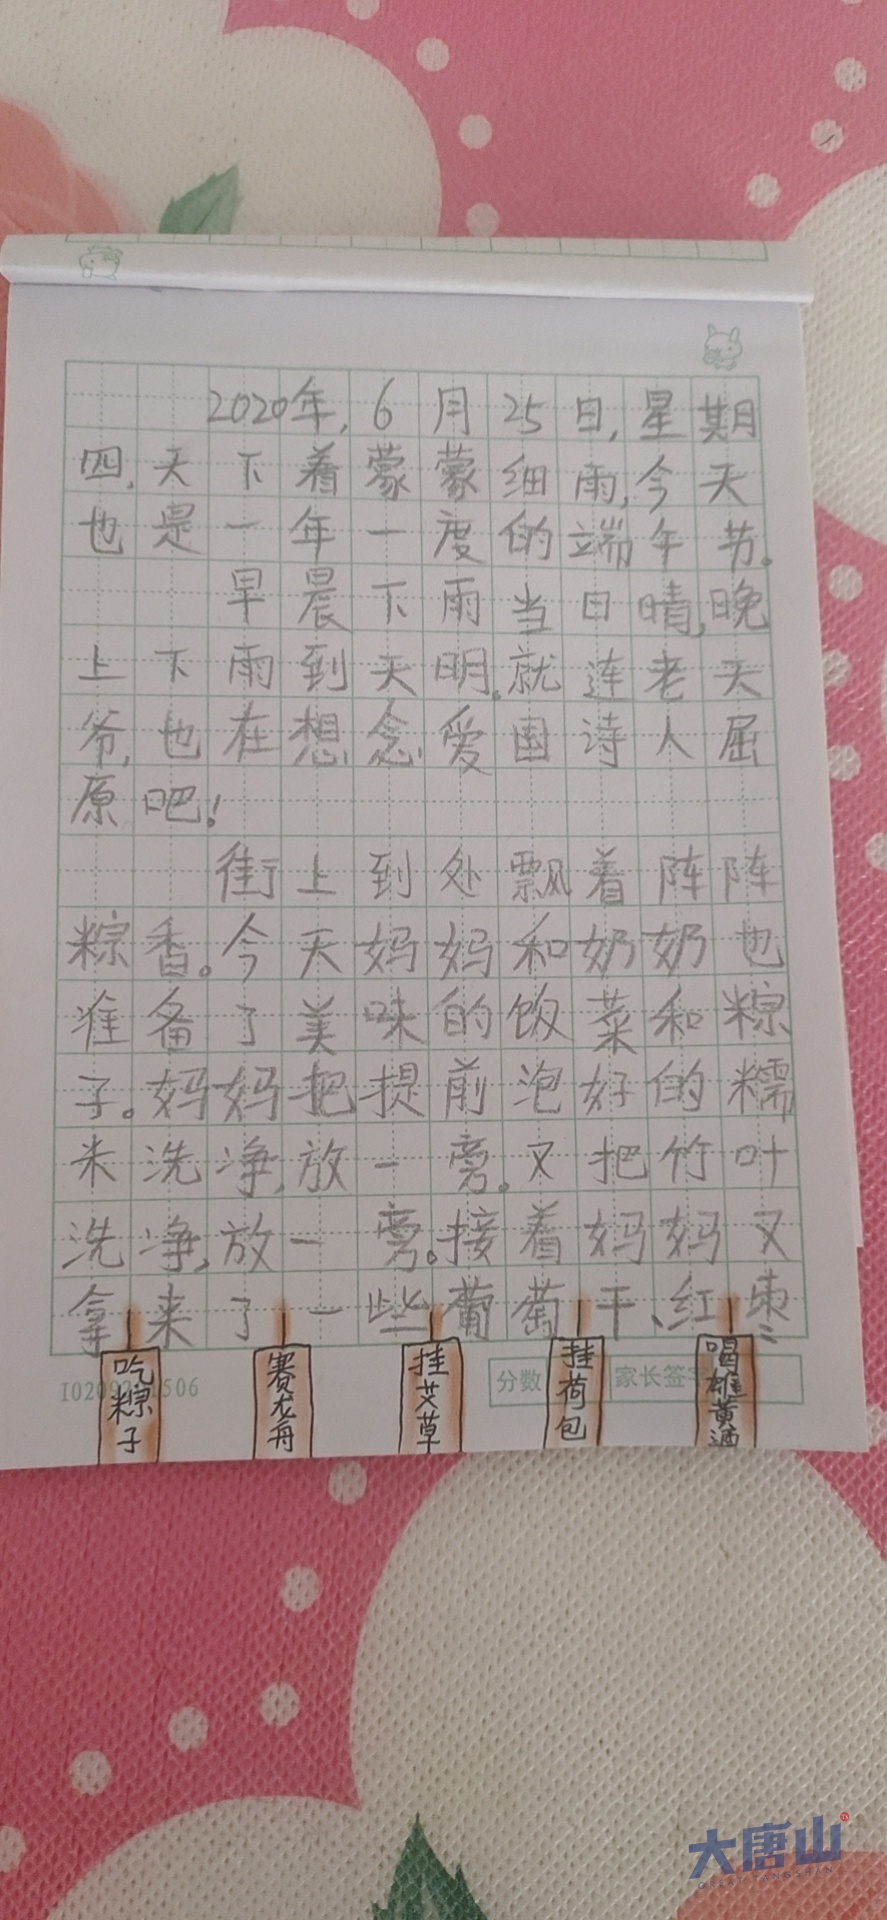 2020年,6月25日,星期
四,天下着蒙蒙细雨,今天
也是一年一度的端午节。
早晨下雨当日晴,晚
上下雨到天明。就连老天
爷,也在想念爱国诗人屈
原吧!
街上到处飘着阵阵
粽香。今天妈妈和奶奶也
准备了美味的饭菜和粽
子。妈妈把提前泡好的糯
米洗净,放一旁。又把竹叶
洗净,放一旁。接着妈妈又
拿来了一些葡萄干、红枣
吃粽子
赛龙舟
挂艾草
挂荷包
喝雄黄酒
分数
家长签字
大唐山
GREAT TANGSHAN